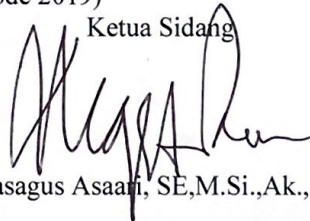 ode 2019)
Ketua Sidang
asagus Asaari, SE,M.Si.,Ak.,